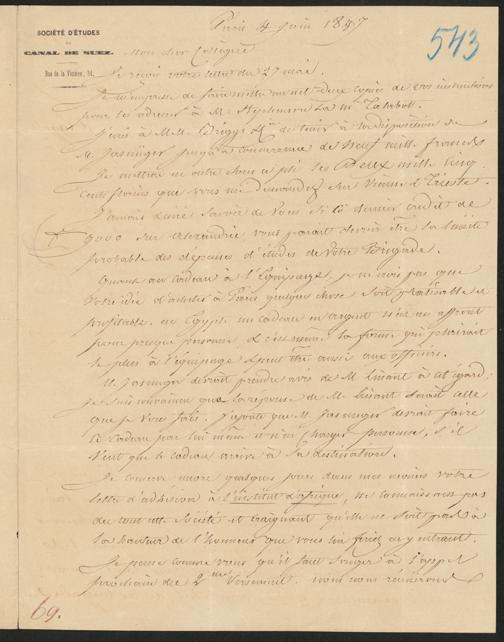 SOCIÉTÉ D'ÉTUDES
DU
CANAL DE SUEZ.
Rue de la Victoire, 34.
Paris 4 Juin 1847
543
Mon cher Collègue
Je reçois votre lettre du 27 mai.
Je m'empresse de faire mettre au net deux copies de vos instructions
pour les adresser à M. Stephenson La m. Talabot.
J'écris à MM. de tenir à la disposition de
M. Jasniger jusqu'à concurrence de neuf mille francs
Je mettrai en outre sous ce pli les deux mille cinq
cents florins que vous me demandez sur Vienne & Trieste.
J'aurais désiré savoir de vous si ce dernier crédit de
9000 sur Alexandrie vous paraît devoir être la limite
probable des dépenses d'études de votre Brigade.
Quant au cadeau à l'Equipage, je ne crois pas que
votre idée d'acheter à Paris quelque chose soit praticable et
profitable. en Egypte un cadeau en argent
pour presque personne, et c'est même la forme qui plairait
le plus à l'équipage & peut être aussi aux officiers.
M. Jasniger devrait prendre avis de M. Linant à cet égard;
je suis convaincu que la réponse de M. Linant serait celle
que je vous fais. J'ajoute que M. Jasniger devrait faire
ce cadeau par lui même et n'en charger personne, s'il
veut que le cadeau arrive à sa destination.
Je conserve encore quelques jours dans mes mains votre
lettre d'adhésion à l'institut d'afrique, ne connaissant pas
du tout cette Société et craignant qu'elle ne soit pas à
la hauteur de l'honneur que vous lui feriez en y entrant.
Je pense comme vous qu'il faut songer à l'appel
prochain du 2me versement. nous nous réunirons
69.